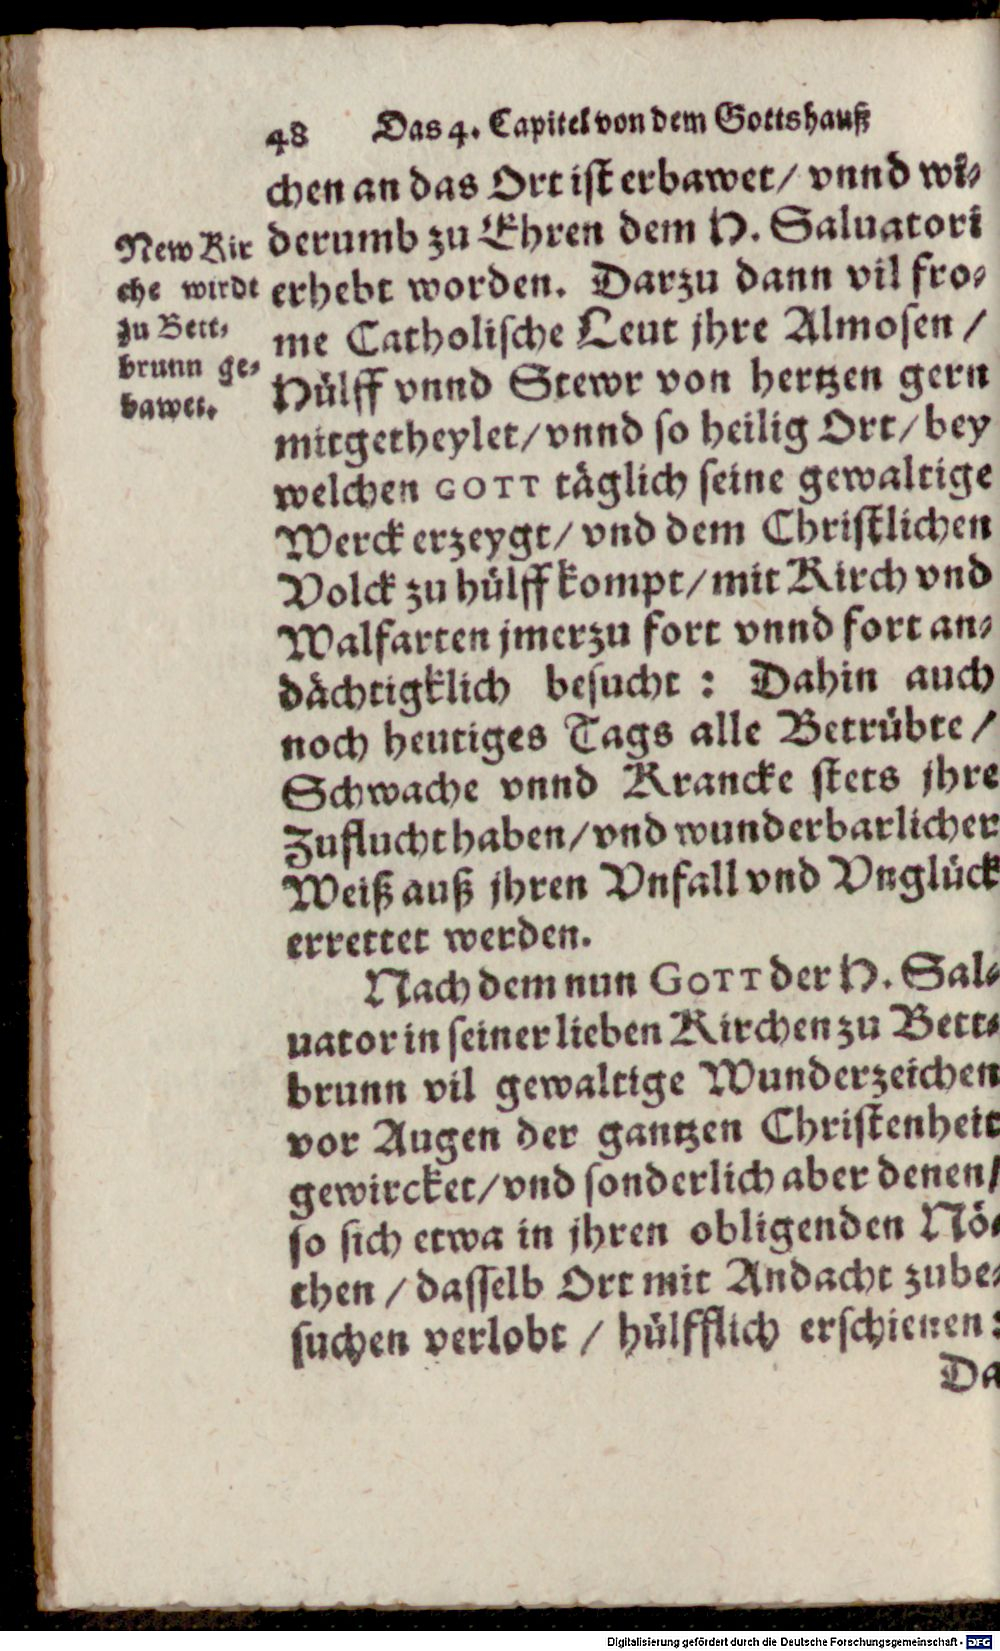 48 Das 4. Capitel von dem Gottshauß
chen an das Ort ist erbawet / vnnd wi-
derumb zu Ehren dem H. Saluatori
erhebt worden. Darzu dann vil fro-
me Catholische Leut jhre Almosen /
Hülff vnnd Stewr von hertzen gern
mitgetheylet / vnnd so heilig Ort / bey
welchen GOTT täglich seine gewaltige
Werck erzeygt / vnd dem Christlichen
Volck zu hülff kompt / mit Kirch vnd
Walfarten jmerzu fort vnnd fort an-
dächtigklich besucht : Dahin auch
noch heutiges Tags alle Betrübte /
Schwache vnnd Krancke stets jhre
Zuflucht haben / vnd wunderbarlicher
Weiß auß jhren Vnfall vnd Vnglück
errettet werden.
Nach dem nun GOTT der H. Sal-
uator in seiner lieben Kirchen zu Bett-
brunn vil gewaltige Wunderzeichen
vor Augen der gantzen Christenheit
gewircket / vnd sonderlich aber denen /
so sich etwa in jhren obligenden Nö-
then / dasselb Ort mit Andacht zube-
suchen verlobt / hülfflich erschienen :
Da
New Kir
che wirdt
zu Bett-
brunn ge-
bawet.
Digitalisierung gefördert durch die Deutsche Forschungsgemeinschaft - DFG